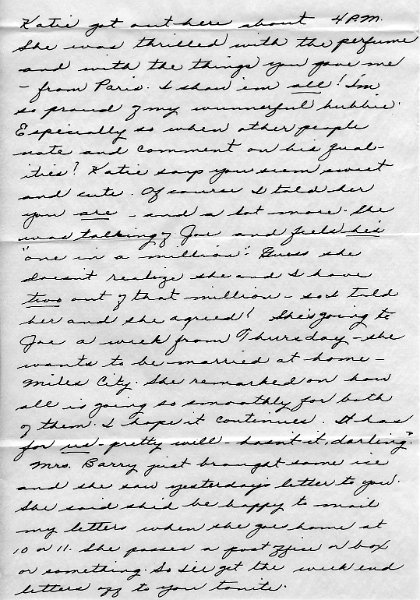 Katie got out here about 4 P.M.
She was thrilled with the perfume
and with the things you gave me
- from Paris. I show 'em all! I'm
so proud of my wunnerful hubbie.
Especially so when other people
note and comment on his qual-
ities! Katie says you seem sweet
and cute. Of course I told her
you are - and a lot more. She
was talking of Joe and feels he's
"one in a million". Guess she
doesn't realize she and I have
two out of that million - so I told
her and she agreed! She's going to
Joe a week from Thursday - she
wants to be married at home -
Miles City. She remarked on how
all is going so smoothly for both
of them. I hope it continues. It has
for us - pretty well - hasn't it, darling?
Mrs. Barry just brought some ice
and she saw yesterday's letter to you.
She said she'd be happy to mail
my letters when she goes home at
10 or 11. She passes a post office or box
or something. So I'll get the week end
letters off to you tonite.